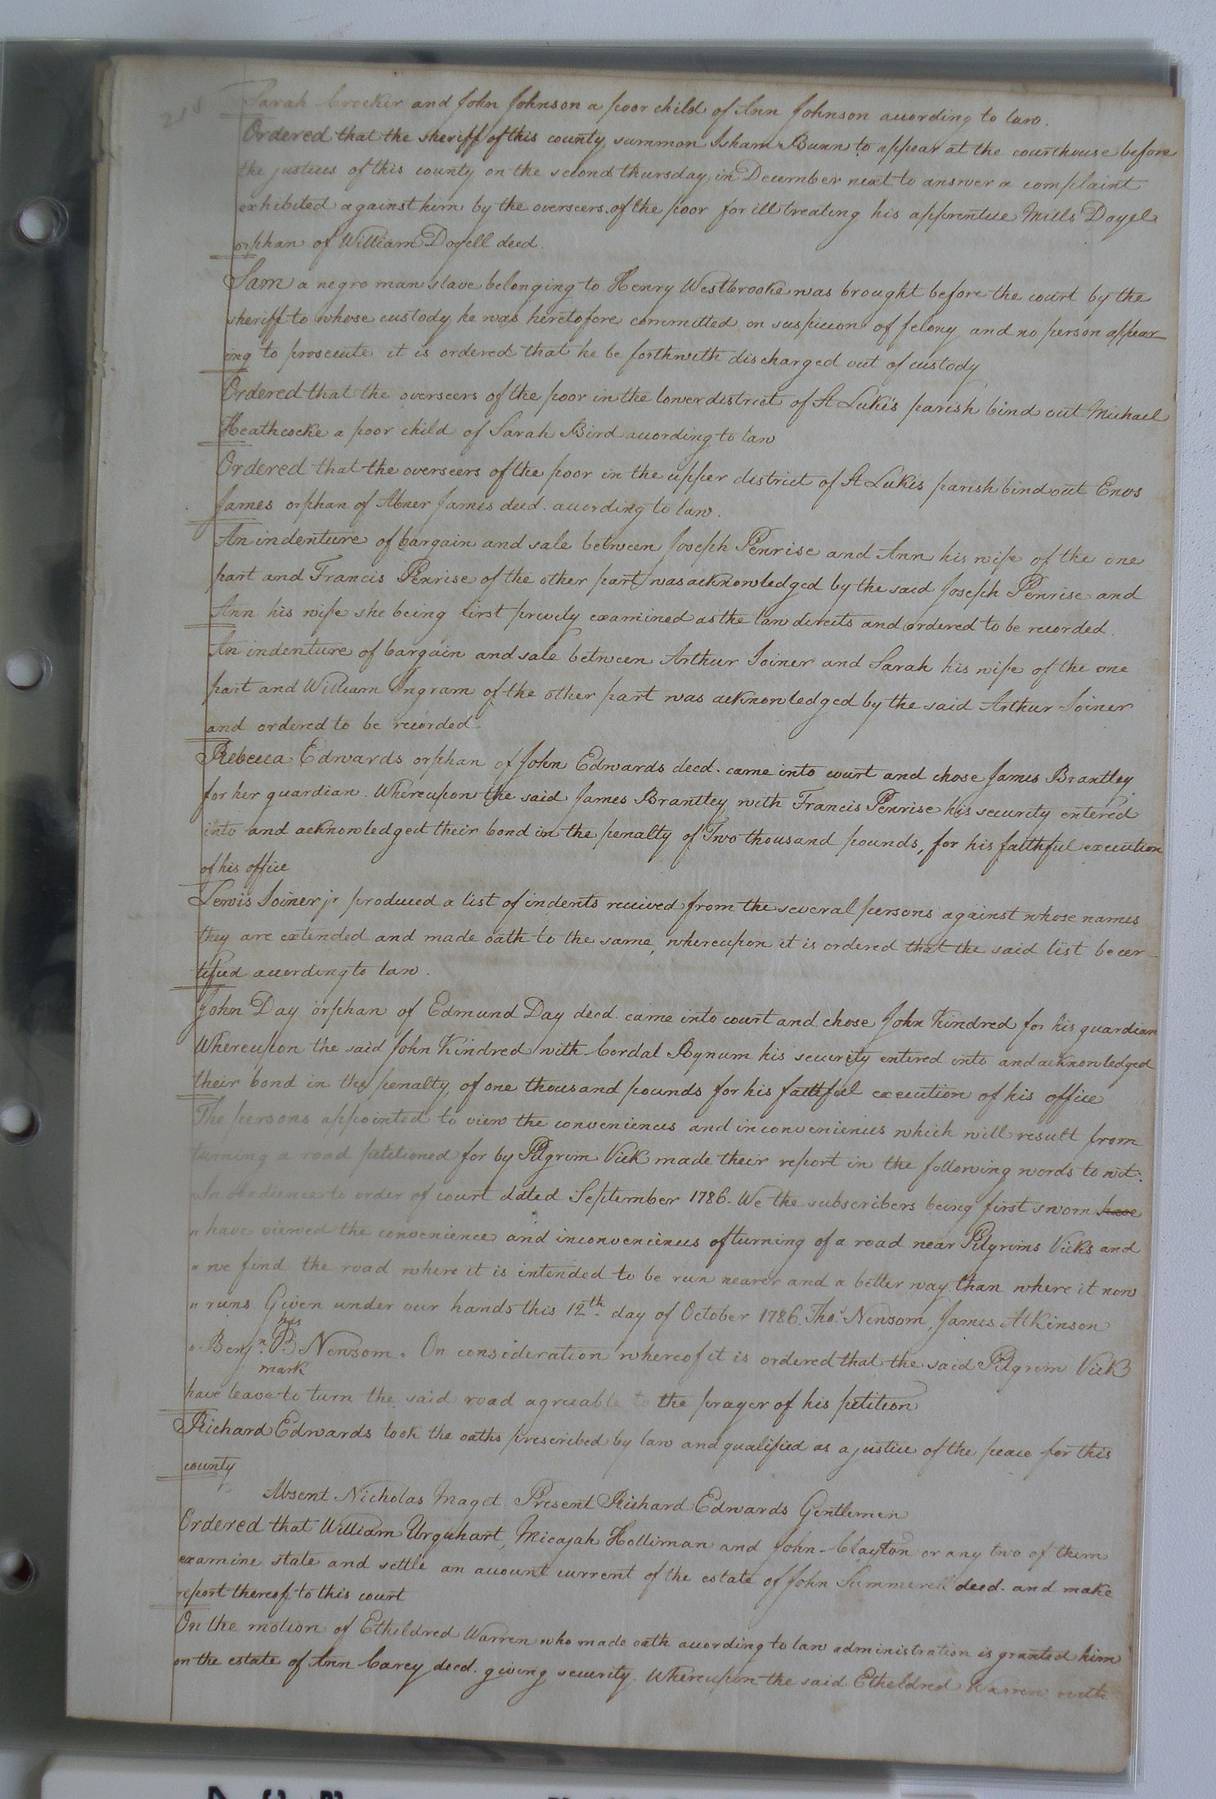 Sarah Crocker and John Johnson a poor child of Ann Johnson according to law.
Ordered that the sheriff of this county summon Isham Bunn to appear at the courthouse before
the justices of this county on the second thursday in December next to answer a complaint
exhibited against him by the overseers of the poor for illtreating his apprentice Mills Doyel
orphan of William Doyell deed.
Sam a negro man slave belonging to Henry Westbrooke was brought before the court by the
sheriff to whose custody he was heretofore committed on suspicion of felony and no person appear
ing to prosecute it is ordered that he be forthwith discharged out of custody
Ordered that the overseers of the poor in the lower district of St Luke's parish bind out Michael
Heathcocke a poor child of Sarah Bird according to law
Ordered that the overseers of the poor in the upper district of St Lukes parish bind out Enos
James orphan of Abner James deed. according to law.
An indenture of bargain and sale between Joseph Penrise and Ann his wife of the one
part and Francis Penrise of the other part was acknowledged by the said Joseph Penrise and
Ann his wife she being first privily examined as the law directs and ordered to be recorded.
An indenture of bargain and sale between Arthur Joiner and Sarah his wife of the one
part and William Ingram of the other part was acknowledged by the said Arthur Joiner
and ordered to be recorded.
Rebecca Edwards orphan of John Edwards deed. came into court and chose James Brantley
for her guardian. Whereupon the said James Brantley with Francis Penrise his security entered
into and acknowledged their bond in the penalty of Two thousand pounds, for his faithful execution
of his office
Lewis Joiner jr produced a list of indents received from the several persons against whose names
they are extended and made oath to the same, whereupon it is ordered that the said list be cer
tified according to law.
John Day orphan of Edmund Day deed. came into court and chose John Kindred for his guardian
Whereupon the said John Kindred with Cordal Bynum his security entered into and acknowledged
their bond in the penalty of one thousand pounds for his faithful execution of his office
The persons appointed to view the conveniences and inconveniences which will result from
turning a road petitioned for by Pilgrim Vick made their report in the following words to wit:
"In obedience to order of court dated September 1786. We the subscribers being first sworn have
" have viewed the convenience and inconveniences of turning of a road near Pilgrims Vicks and
" we find the road where it is intended to be run nearer and a better way than where it now
" runs. Given under our hands this 12th day of October 1786. Thos Newsom, James Atkinson
his
" Benjn. B Newsom. On consideration whereof it is ordered that the said Pilgrim Vick
mark
have leave to turn the said road agreeable to the prayer of his petition
Richard Edwards took the oaths prescribed by law and qualified as a justice of the peace for this
county
Absent Nicholas Maget Present Richard Edwards Gentlemen
Ordered that William Urquhart, Micajah Holliman and John Clayton or any two of them
examine state and settle an account current of the estate of John Summerell deed. and make
report thereof to this court
On the motion of Etheldred Warren who made oath according to law administration is granted him
on the estate of Ann Carey deed. giving security. Whereupon the said Etheldred Warren with